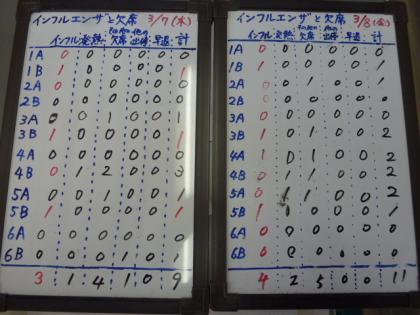 インフルエンザと欠席 3/7(木)
インフル 発熱 その他の欠席 他の出停 早退 計
1A 0 0 0 0 0 0
1B 1 0 0 0 0 1
2A 0 0 0 0 0 0
2B 0 0 0 0 0 0
3A 0 0 1 0 0 1
3B 1 0 0 0 0 1
4A 0 0 0 0 0 0
4B 0 1 2 0 0 3
5A 0 0 1 0 0 1
5B 1 0 0 0 0 1
6A 0 0 0 0 0 0
6B 0 0 0 1 0 1
3 1 4 1 0 9
インフルエンザと欠席 3/8(金)
インフル 発熱 その他の欠席 他の出停 早退 計
1A 0 0 0 0
1B 1 0 0 0 0 1
2A 0 0 1 0 0 1
2B 0 0 0 0 0 0
3A 0 0 1 0 0 1
3B 1 0 1 0 0 2
4A 1 0 1 0 0 2
4B 0 1 1 0 0 2
5A 0 1 1 0 0 2
5B 1 0 0 0 1
6A 0 0 0 0 0 0
6B 0 0 0 0 0 0
4 2 5 0 0 11